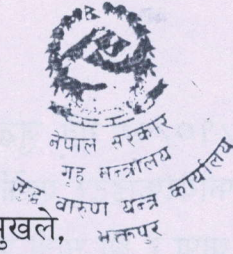 नेपाल सरकार
गृह मन्त्रालय
जुद्ध वारुण यन्त्र कार्यालय
भक्तपुर
मुखले,